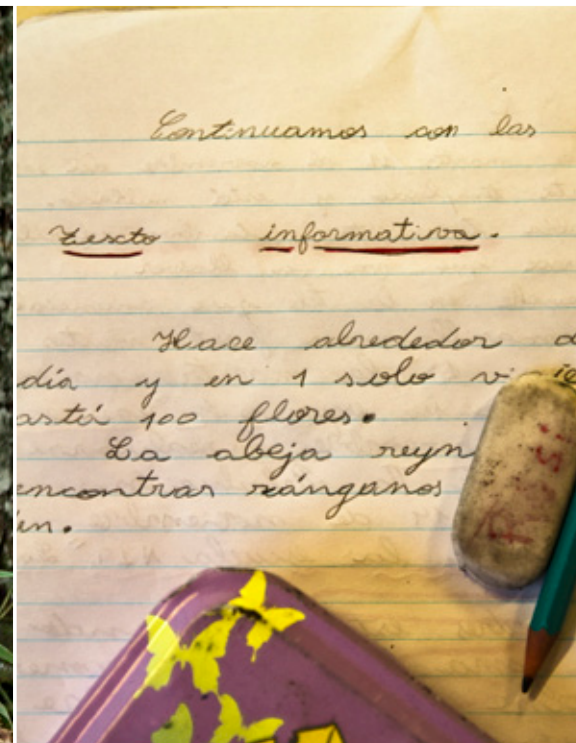 Continuamos con las
Texto informativa.
Hace alrededor
día y en 1 solo
100 flores.
La abeja reyn
encontrar zánganos